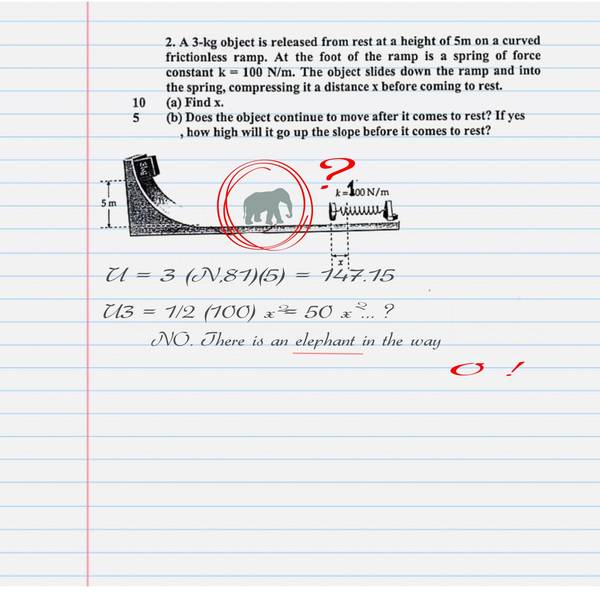 2. A 3-kg object is released from rest at a height of 5m on a curved
frictionless ramp. At the foot of the ramp is a spring of force
constant k = 100 N/m. The object slides down the ramp and into
the spring, compressing it a distance x before coming to rest.
10 (a) Find x.
5 (b) Does the object continue to move after it comes to rest? If yes
, how high will it go up the slope before it comes to rest?
3kg
?
k = 100 N/m
5 m
x
U = 3 (N,81)(5) = 147.15
U3 = 1/2 (100) x² = 50 x²... ?
NO. There is an elephant in the way
0 !